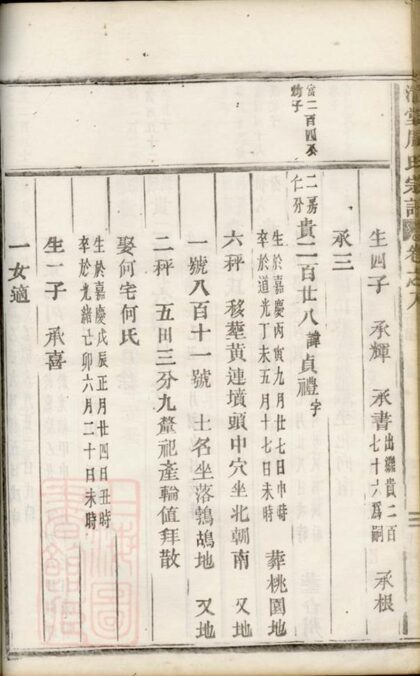 生四子 承輝 承書出繼貴二百七十六爲嗣 承根
承三
富二百四公
幼子
二房仁分貴二百廿八諱貞禮字
生於嘉慶丙寅九月廿七日申時
卒於道光丁未五月十七日未時 葬桃園地
六秤 移塟黄連墳頭中穴坐北朝南 又地
一號八百十一號 土名坐落鵓鴣地 又地
二秤 五田三分九釐祀產輪值拜散
娶何宅何氏
生於嘉慶戊辰正月廿四日丑時
卒於光緒己卯六月二十日未時
生一子 承喜
一女適